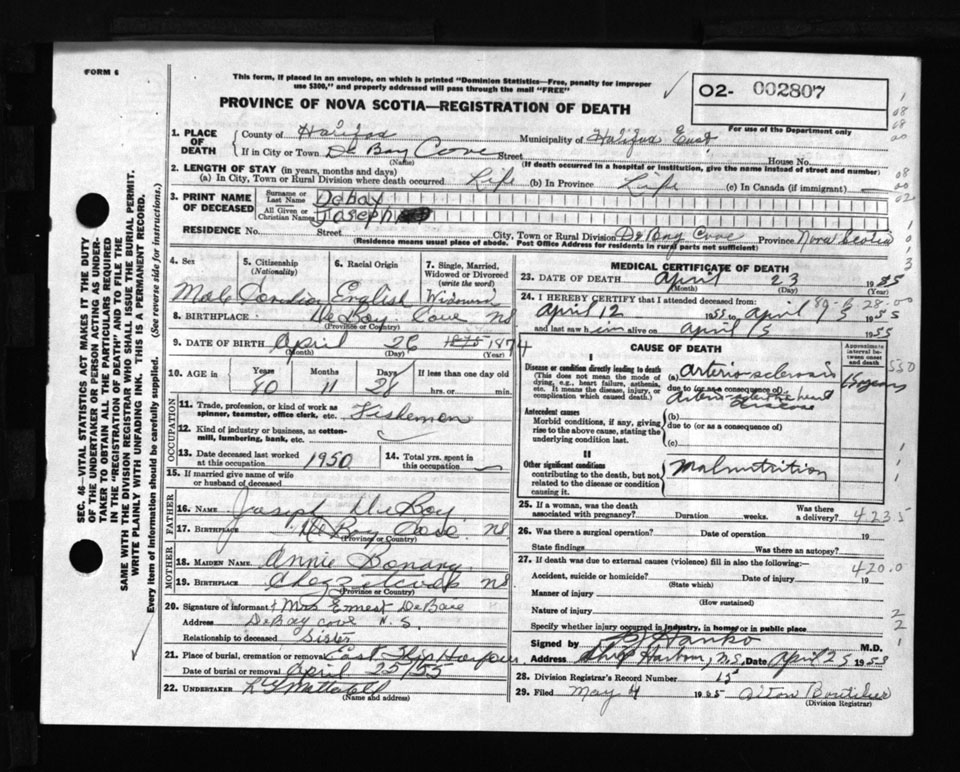 FORM 6
This form, if placed in an envelope, on which is printed "Dominion Statistics—Free, penalty for improper
use $300," and properly addressed will pass through the mail "FREE"
PROVINCE OF NOVA SCOTIA—REGISTRATION OF DEATH
02- 002807
For use of the Department only
SEC. 46—VITAL STATISTICS ACT MAKES IT THE DUTY
OF THE UNDERTAKER OR PERSON ACTING AS UNDER-
TAKER TO OBTAIN ALL THE PARTICULARS REQUIRED
IN THE "REGISTRATION OF DEATH" AND TO FILE THE
SAME WITH THE DIVISION REGISTRAR WHO SHALL ISSUE THE BURIAL PERMIT.
WRITE PLAINLY WITH UNFADING INK. THIS IS A PERMANENT RECORD.
Every item of information should be carefully supplied. (See reverse side for instructions.)
1. PLACE OF DEATH
County of Halifax Municipality of Halifax East
If in City or Town De Bay Cove Street House No.
(Name) (If death occurred in a hospital or institution, give the name instead of street and number)
2. LENGTH OF STAY (in years, months and days)
(a) In City, Town or Rural Division where death occurred Life (b) In Province Life (c) In Canada (if immigrant)
3. PRINT NAME OF DECEASED
Surname or Last Name DeBay
All Given or Christian Names Joseph
RESIDENCE No. Street City, Town or Rural Division De Bay Cove Province Nova Scotia
(Residence means usual place of abode. Post Office Address for residents in rural parts not sufficient)
4. Sex 5. Citizenship (Nationality) 6. Racial Origin 7. Single, Married, Widowed or Divorced (write the word)
Male English
8. BIRTHPLACE De Bay Cove NS
(Province or Country)
9. DATE OF BIRTH April 26 1875 1874
(Month) (Day) (Year)
10. AGE in Years Months Days If less than one day old
80 11 28 hrs. or min.
OCCUPATION
11. Trade, profession, or kind of work as spinner, teamster, office clerk, etc. Fishermen
12. Kind of industry or business, as cotton-mill, lumbering, bank, etc.
13. Date deceased last worked at this occupation 1950 14. Total yrs. spent in this occupation
15. If married give name of wife or husband of deceased
FATHER
16. NAME Joseph De Bay
17. BIRTHPLACE De Bay Cove NS
(Province or Country)
MOTHER
18. MAIDEN NAME Annie
19. BIRTHPLACE NS
(Province or Country)
20. Signature of informant Mrs Ernest DeBaie
Address DeBay cove N.S.
Relationship to deceased Sister
21. Place of burial, cremation or removal East Ship Harbour
Date of burial or removal April 25/55
22. UNDERTAKER
(Name and address)
MEDICAL CERTIFICATE OF DEATH
23. DATE OF DEATH April 23 1955
(Month) (Day) (Year)
24. I HEREBY CERTIFY that I attended deceased from:
April 12 1955 to April 1955
and last saw him alive on April 15 1955
CAUSE OF DEATH
Approximate interval between onset and death
I
Disease or condition directly leading to death
(This does not mean the mode of dying, e.g., heart failure, asthenia, etc. It means the disease, injury, or complication which caused death.)
(a) Arteriosclerosis years
due to (or as a consequence of)
heart
Antecedent causes
Morbid conditions, if any, giving rise to the above cause, stating the underlying condition last.
(b)
due to (or as a consequence of)
(c)
II
Other significant conditions
contributing to the death, but not related to the disease or condition causing it.
Malnutrition
25. If a woman, was the death associated with pregnancy? Duration weeks. Was there a delivery?
4235
26. Was there a surgical operation? Date of operation 19
State findings Was there an autopsy?
27. If death was due to external causes (violence) fill in also the following:
420.0
Accident, suicide or homicide? Date of injury 19
(State which)
Manner of injury
(How sustained)
Nature of injury
Specify whether injury occurred in industry, in home, or in public place
Signed by Hanko M.D.
Address Ship Harbour, N.S. Date April 25 1955
28. Division Registrar's Record Number 15
29. Filed May 4 1955 Boutilier
(Division Registrar)